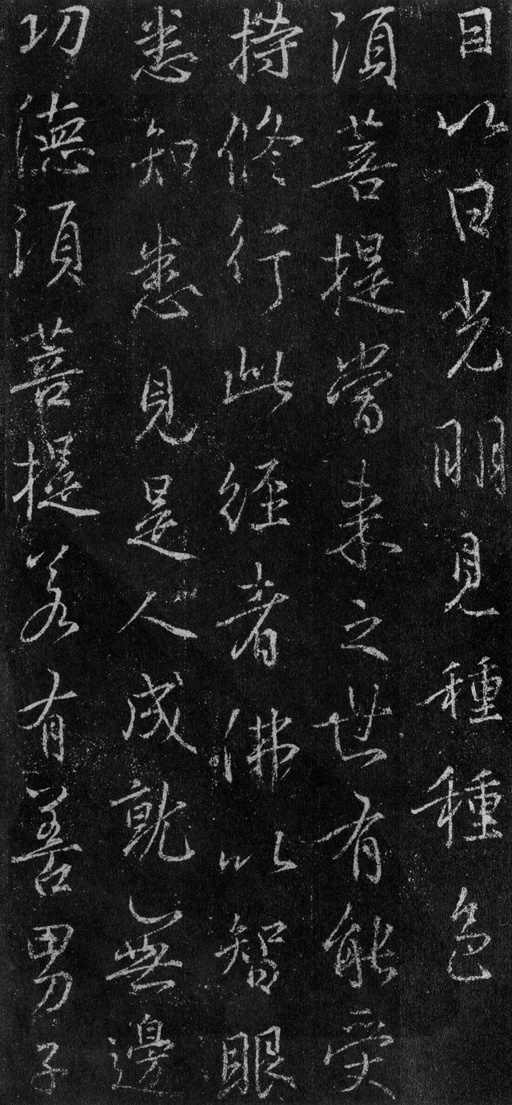 目以日光明見種種色
須菩提當来之世有能受
持修行此経者佛以智眼
悉知悉見是人成就無邊
功德須菩提若有善男子